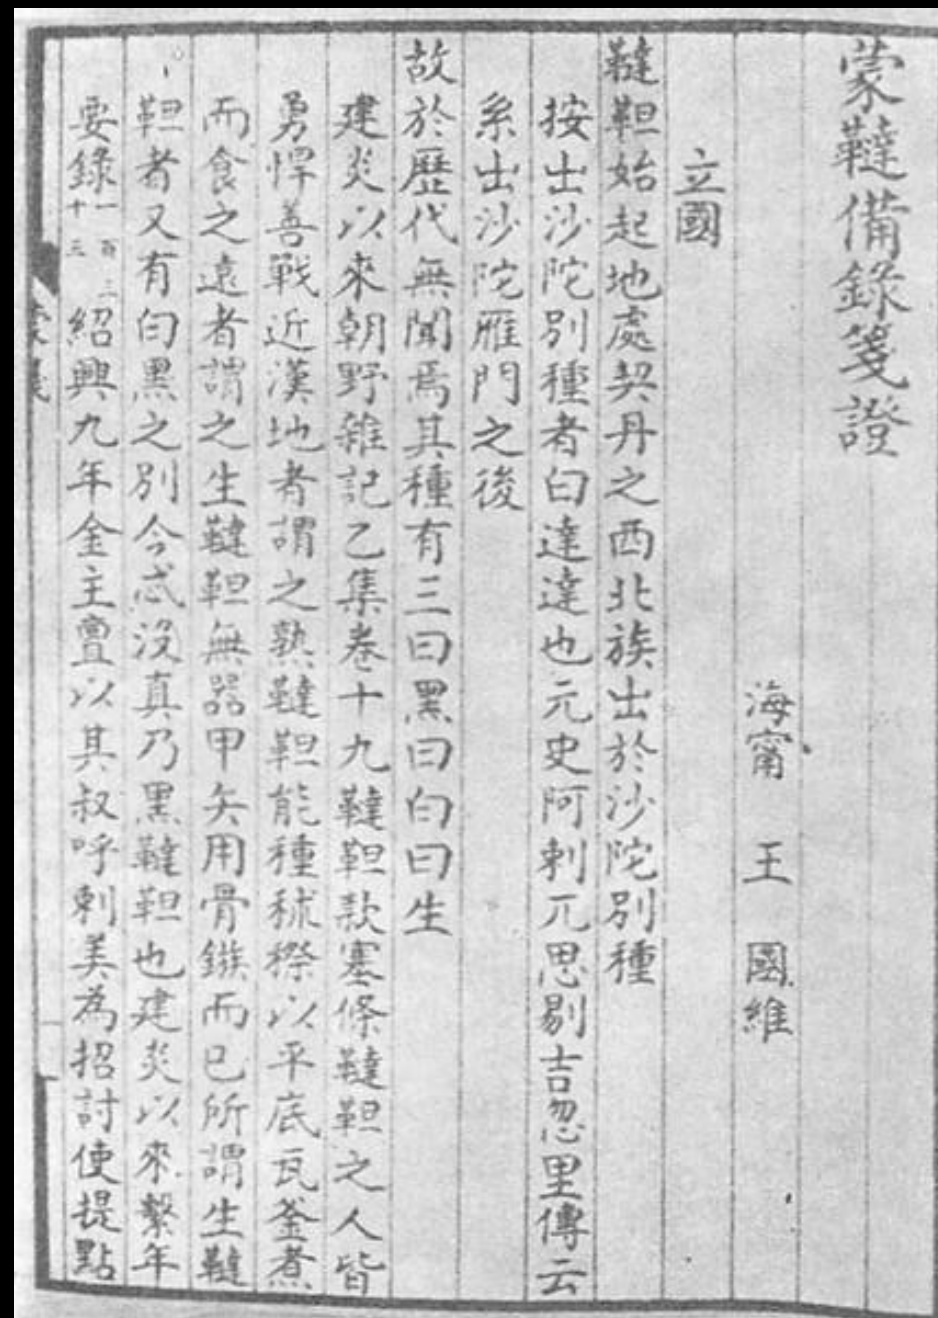 蒙韃備錄箋證
海甯 王 國維
立國
韃靼始起地處契丹之西北族出於沙陀別種
按出沙陀別種者曰達達也元史阿剌兀思剔吉忽里傳云
系出沙陀雁門之後
故於歷代無聞焉其種有三曰黑曰白曰生
建炎以來朝野雜記乙集卷十九韃靼款塞條韃靼之人皆
勇悍善戰近漢地者謂之熟韃靼能種秫穄以平底瓦釜煮
而食之遠者謂之生韃靼無器甲矢用骨鏃而已所謂生韃
靼者又有白黑之別今忒沒真乃黑韃靼也建炎以來繫年
要錄一百三十三紹興九年金主亶以其叔呼剌美為招討使提點